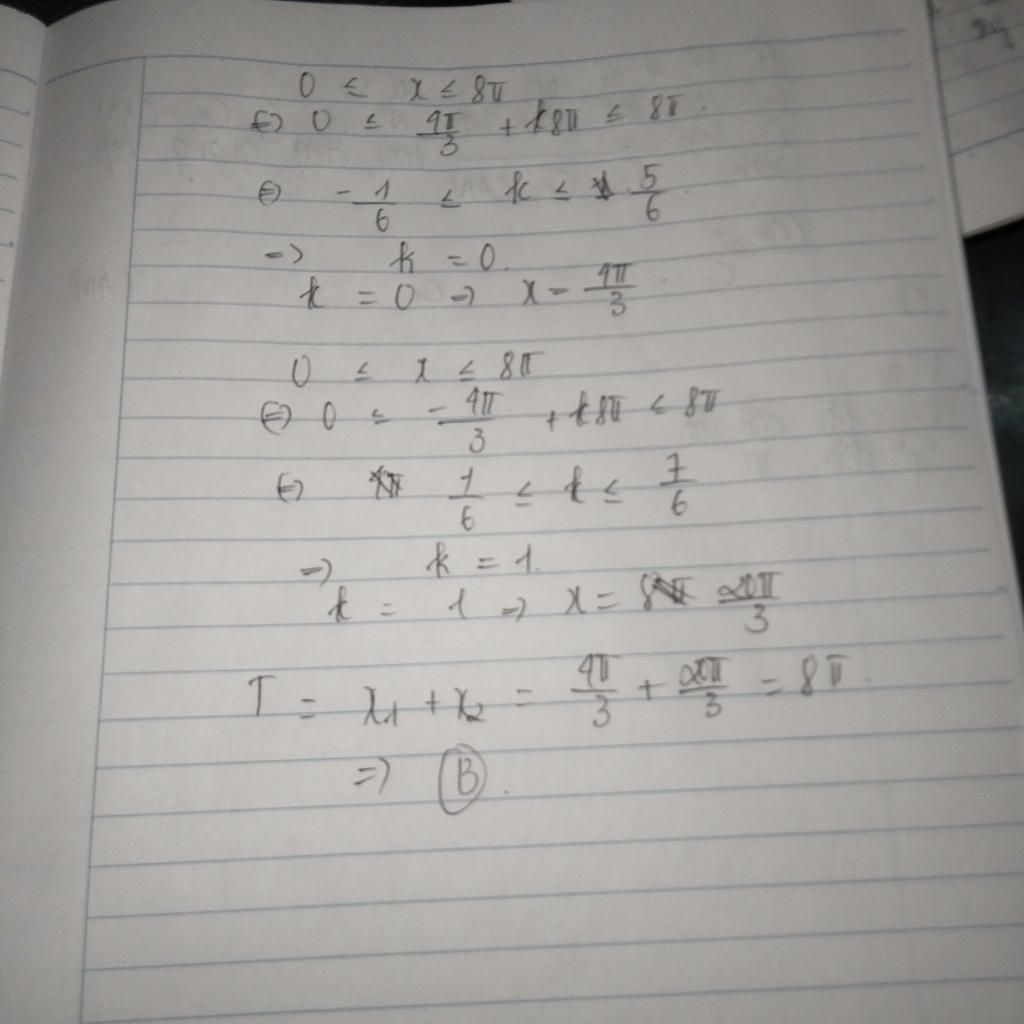 0 ≤ x ≤ 8π
⇔ 0 ≤ 4π/3 + k8π ≤ 8π.
⇔ -1/6 ≤ k ≤ 5/6
=> k = 0.
k = 0 => x = 4π/3
0 ≤ x ≤ 8π
⇔ 0 ≤ -4π/3 + k8π ≤ 8π
⇔ 1/6 ≤ k ≤ 7/6
=> k = 1.
k = 1 => x = 20π/3
T = x₁ + x₂ = 4π/3 + 20π/3 = 8π.
=> B.